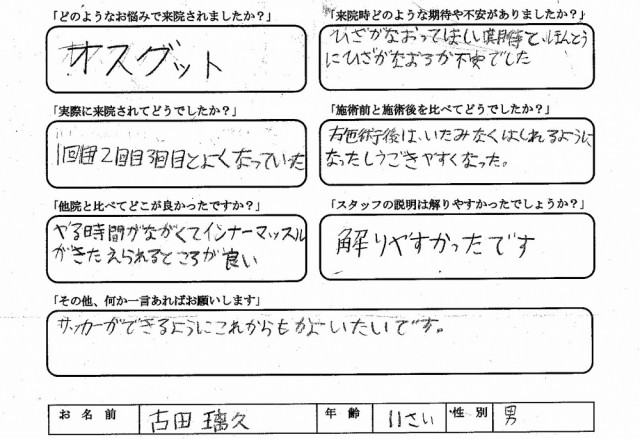 「どのようなお悩みで来院されましたか？」
オスグット
「来院時どのような期待や不安がありましたか？」
ひざがなおってほしい期待と、ほんとう
にひざがなおるか不安でした
「実際に来院されてどうでしたか？」
1回目2回目3回目とよくなっていった
「施術前と施術後を比べてどうでしたか？」
施術後は、いたみなくはしれるように
なったしうごきやすくなった。
「他院と比べてどこが良かったですか？」
やる時間がながくてインナーマッスル
がきたえられるところが良い
「スタッフの説明は解りやすかったでしょうか？」
解りやすかったです
「その他、何か一言あればお願いします」
サッカーができるようにこれからもかよいたいです。
お名前 古田璃久 年齢 11さい 性別 男